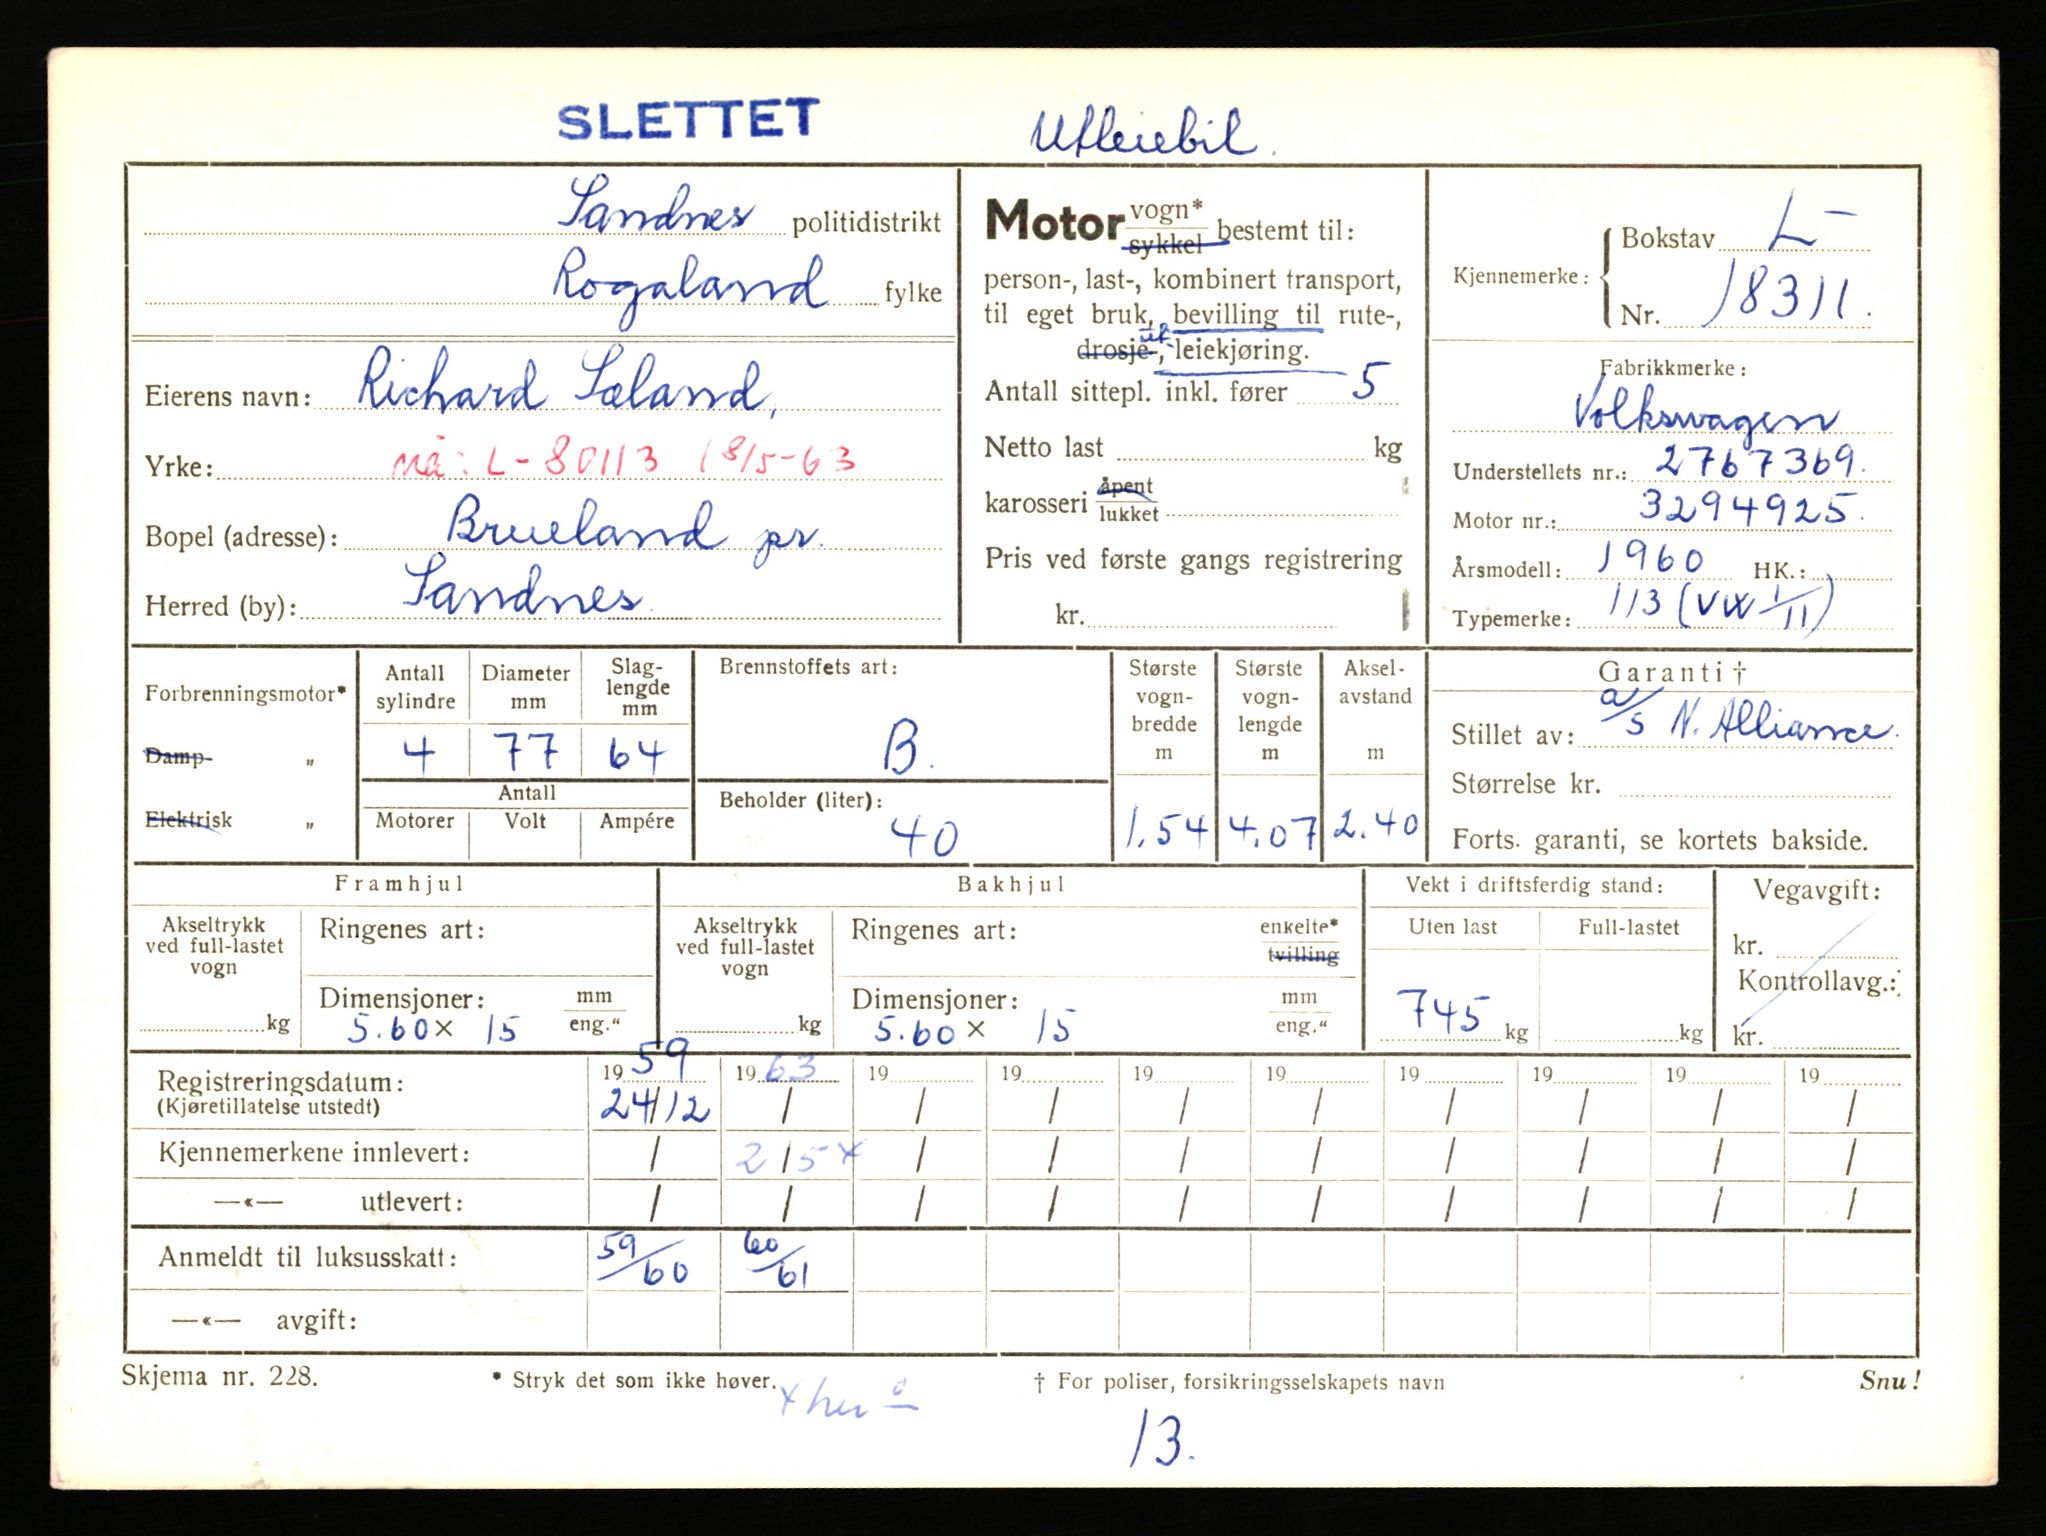 SLETTET
Utleiebil.
Sandnes politidistrikt
Rogaland fylke
Eierens navn: Richard Sæland,
Yrke: nå: L-80113 18/5-63
Bopel (adresse): Brueland pr.
Herred (by): Sandnes
Motor vogn*
sykkel bestemt til:
person-, last-, kombinert transport,
til eget bruk, bevilling til rute-,
drosje-, ut- leiekjøring.
Antall sittepl. inkl. fører 5
Netto last kg
karosseri åpent
lukket
Pris ved første gangs registrering
kr.
Kjennemerke: Bokstav L-
Nr. 18311.
Fabrikkmerke:
Volkswagen
Understellets nr.: 2767369.
Motor nr.: 3294925.
Årsmodell: 1960 HK.:
Typemerke: 113 (VW 1/11)
Forbrenningsmotor*
Damp- „
Elektrisk „
Antall sylindre Diameter mm Slag-lengde mm
4 77 64
Antall
Motorer Volt Ampére
Brennstoffets art:
B.
Beholder (liter):
40
Største vogn-bredde m
1.54
Største vogn-lengde m
4.07
Aksel-avstand m
2.40
Garanti †
Stillet av: a/s N. Alliance.
Størrelse kr.
Forts. garanti, se kortets bakside.
Framhjul
Akseltrykk ved full-lastet vogn
kg
Ringenes art:
Dimensjoner: mm
5.60 x 15 eng."
Bakhjul
Akseltrykk ved full-lastet vogn
kg
Ringenes art: enkelte*
tvilling
Dimensjoner: mm
5.60 x 15 eng."
Vekt i driftsferdig stand:
Uten last Full-lastet
745 kg kg
Vegavgift:
kr.
Kontrollavg.:
kr.
Registreringsdatum: 1959 1963 19 19 19 19 19 19 19 19
(Kjøretillatelse utstedt) 24/12 / / / / / / / / /
Kjennemerkene innlevert: / 2/5 x / / / / / / / /
—«— utlevert: / / / / / / / / / /
Anmeldt til luksusskatt: 59/60 60/61
—«— avgift:
Skjema nr. 228. * Stryk det som ikke høver. † For poliser, forsikringsselskapets navn Snu!
x her
13.